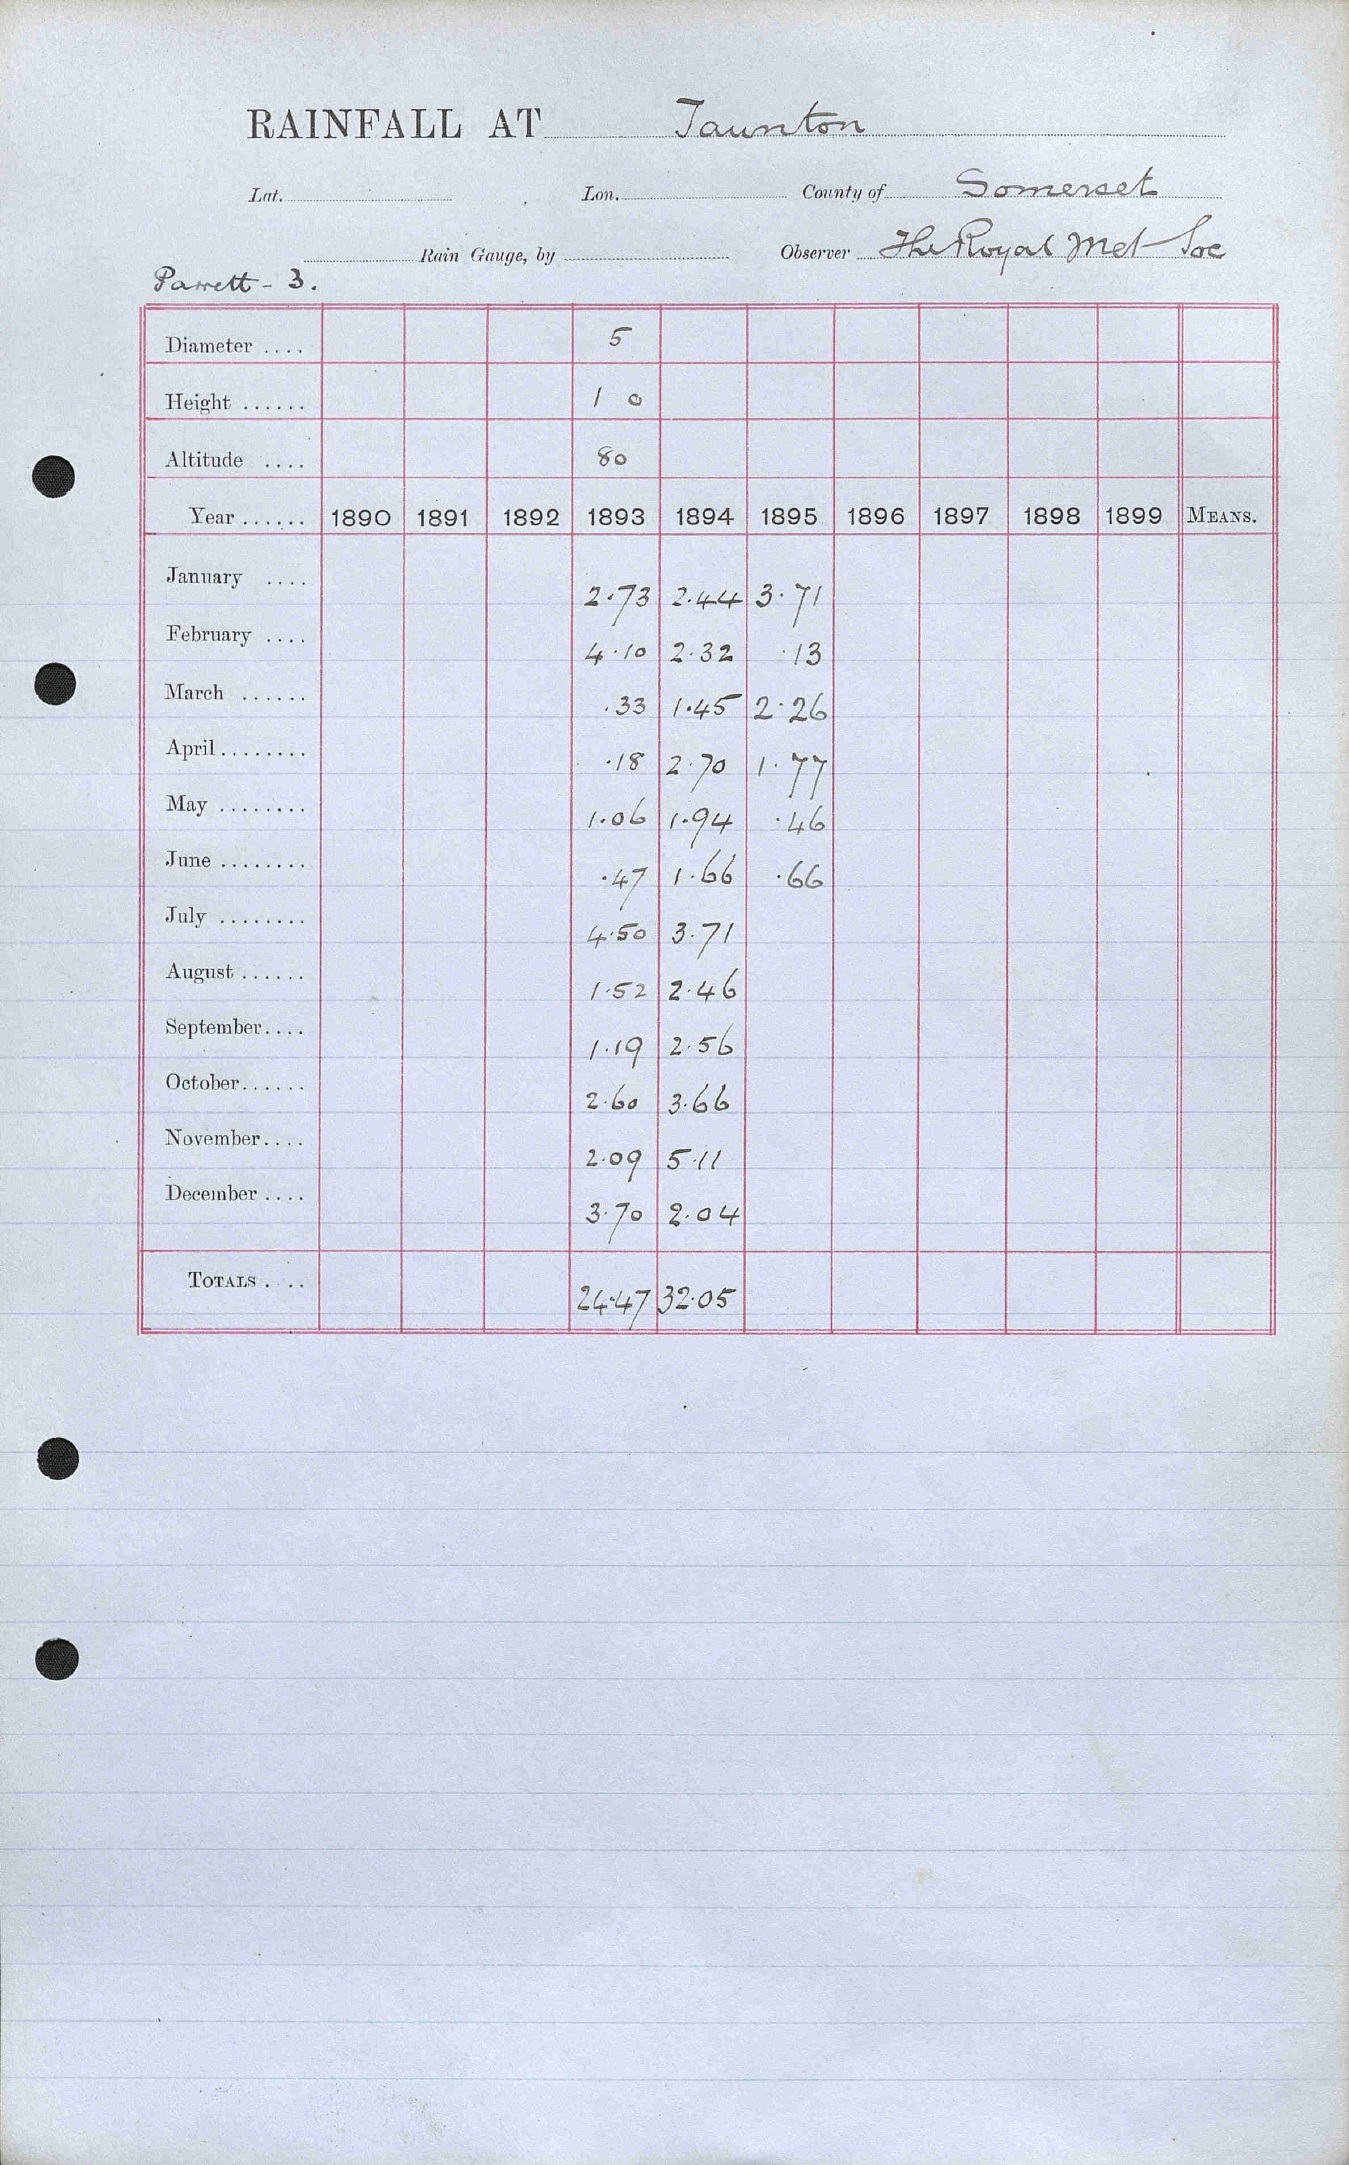 RAINFALL AT Taunton
Lat. Lon. County of Somerset
Rain Gauge, by Observer The Royal Met Soc
Parrett - 3.
Diameter .... 5
Height ...... 1 0
Altitude .... 80
Year ...... 1890 1891 1892 1893 1894 1895 1896 1897 1898 1899 MEANS.
January .... 2.73 2.44 3.71
February .... 4.10 2.32 .13
March ...... .33 1.45 2.26
April ........ .18 2.70 1.77
May ........ 1.06 1.94 .46
June ........ .47 1.66 .66
July ........ 4.50 3.71
August ...... 1.52 2.46
September.... 1.19 2.56
October...... 2.60 3.66
November.... 2.09 5.11
December .... 3.70 2.04
TOTALS . .. 24.47 32.05